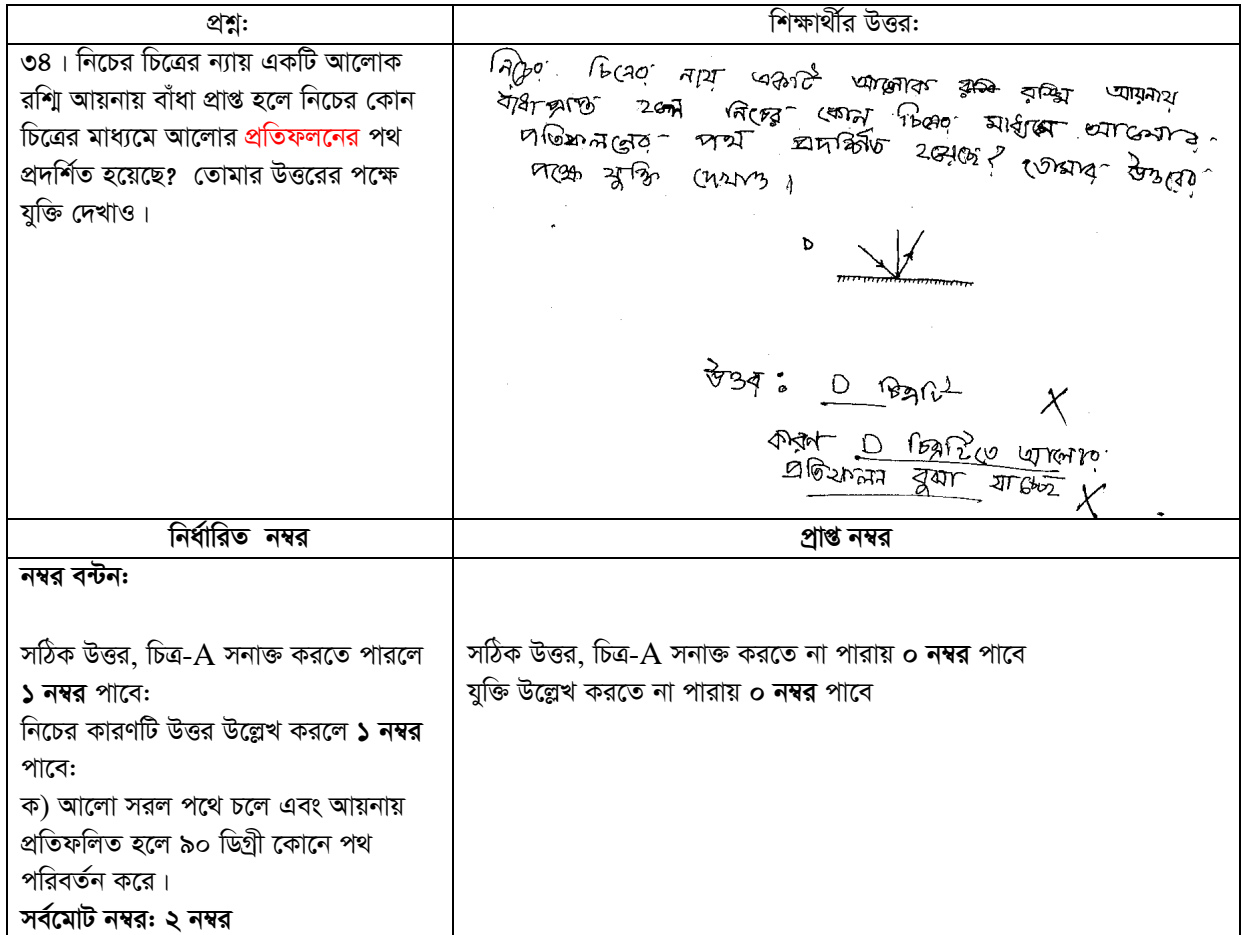 প্রশ্ন:
শিক্ষার্থীর উত্তর:
৩৪। নিচের চিত্রের ন্যায় একটি আলোক
রশ্মি আয়নায় বাঁধা প্রাপ্ত হলে নিচের কোন
চিত্রের মাধ্যমে আলোর প্রতিফলনের পথ
প্রদর্শিত হয়েছে? তোমার উত্তরের পক্ষে
যুক্তি দেখাও।
নিচের চিত্রের ন্যায় একটি আলোক রশ্মি আয়নায়
বাঁধা প্রাপ্ত হলে নিচের কোন চিত্রের মাধ্যমে আলোর
প্রতিফলনের পথ প্রদর্শিত হয়েছে? তোমার উত্তরের
পক্ষে যুক্তি দেখাও।
D
উত্তর: D চিত্রটি
কারণ D চিত্রটিতে আলোর
প্রতিফলন বুঝা যাচ্ছে
নির্ধারিত নম্বর
প্রাপ্ত নম্বর
নম্বর বন্টন:
সঠিক উত্তর, চিত্র-A সনাক্ত করতে পারলে
১ নম্বর পাবে:
নিচের কারণটি উত্তর উল্লেখ করলে ১ নম্বর
পাবে:
ক) আলো সরল পথে চলে এবং আয়নায়
প্রতিফলিত হলে ৯০ ডিগ্রী কোনে পথ
পরিবর্তন করে।
সর্বমোট নম্বর: ২ নম্বর
সঠিক উত্তর, চিত্র-A সনাক্ত করতে না পারায় ০ নম্বর পাবে
যুক্তি উল্লেখ করতে না পারায় ০ নম্বর পাবে